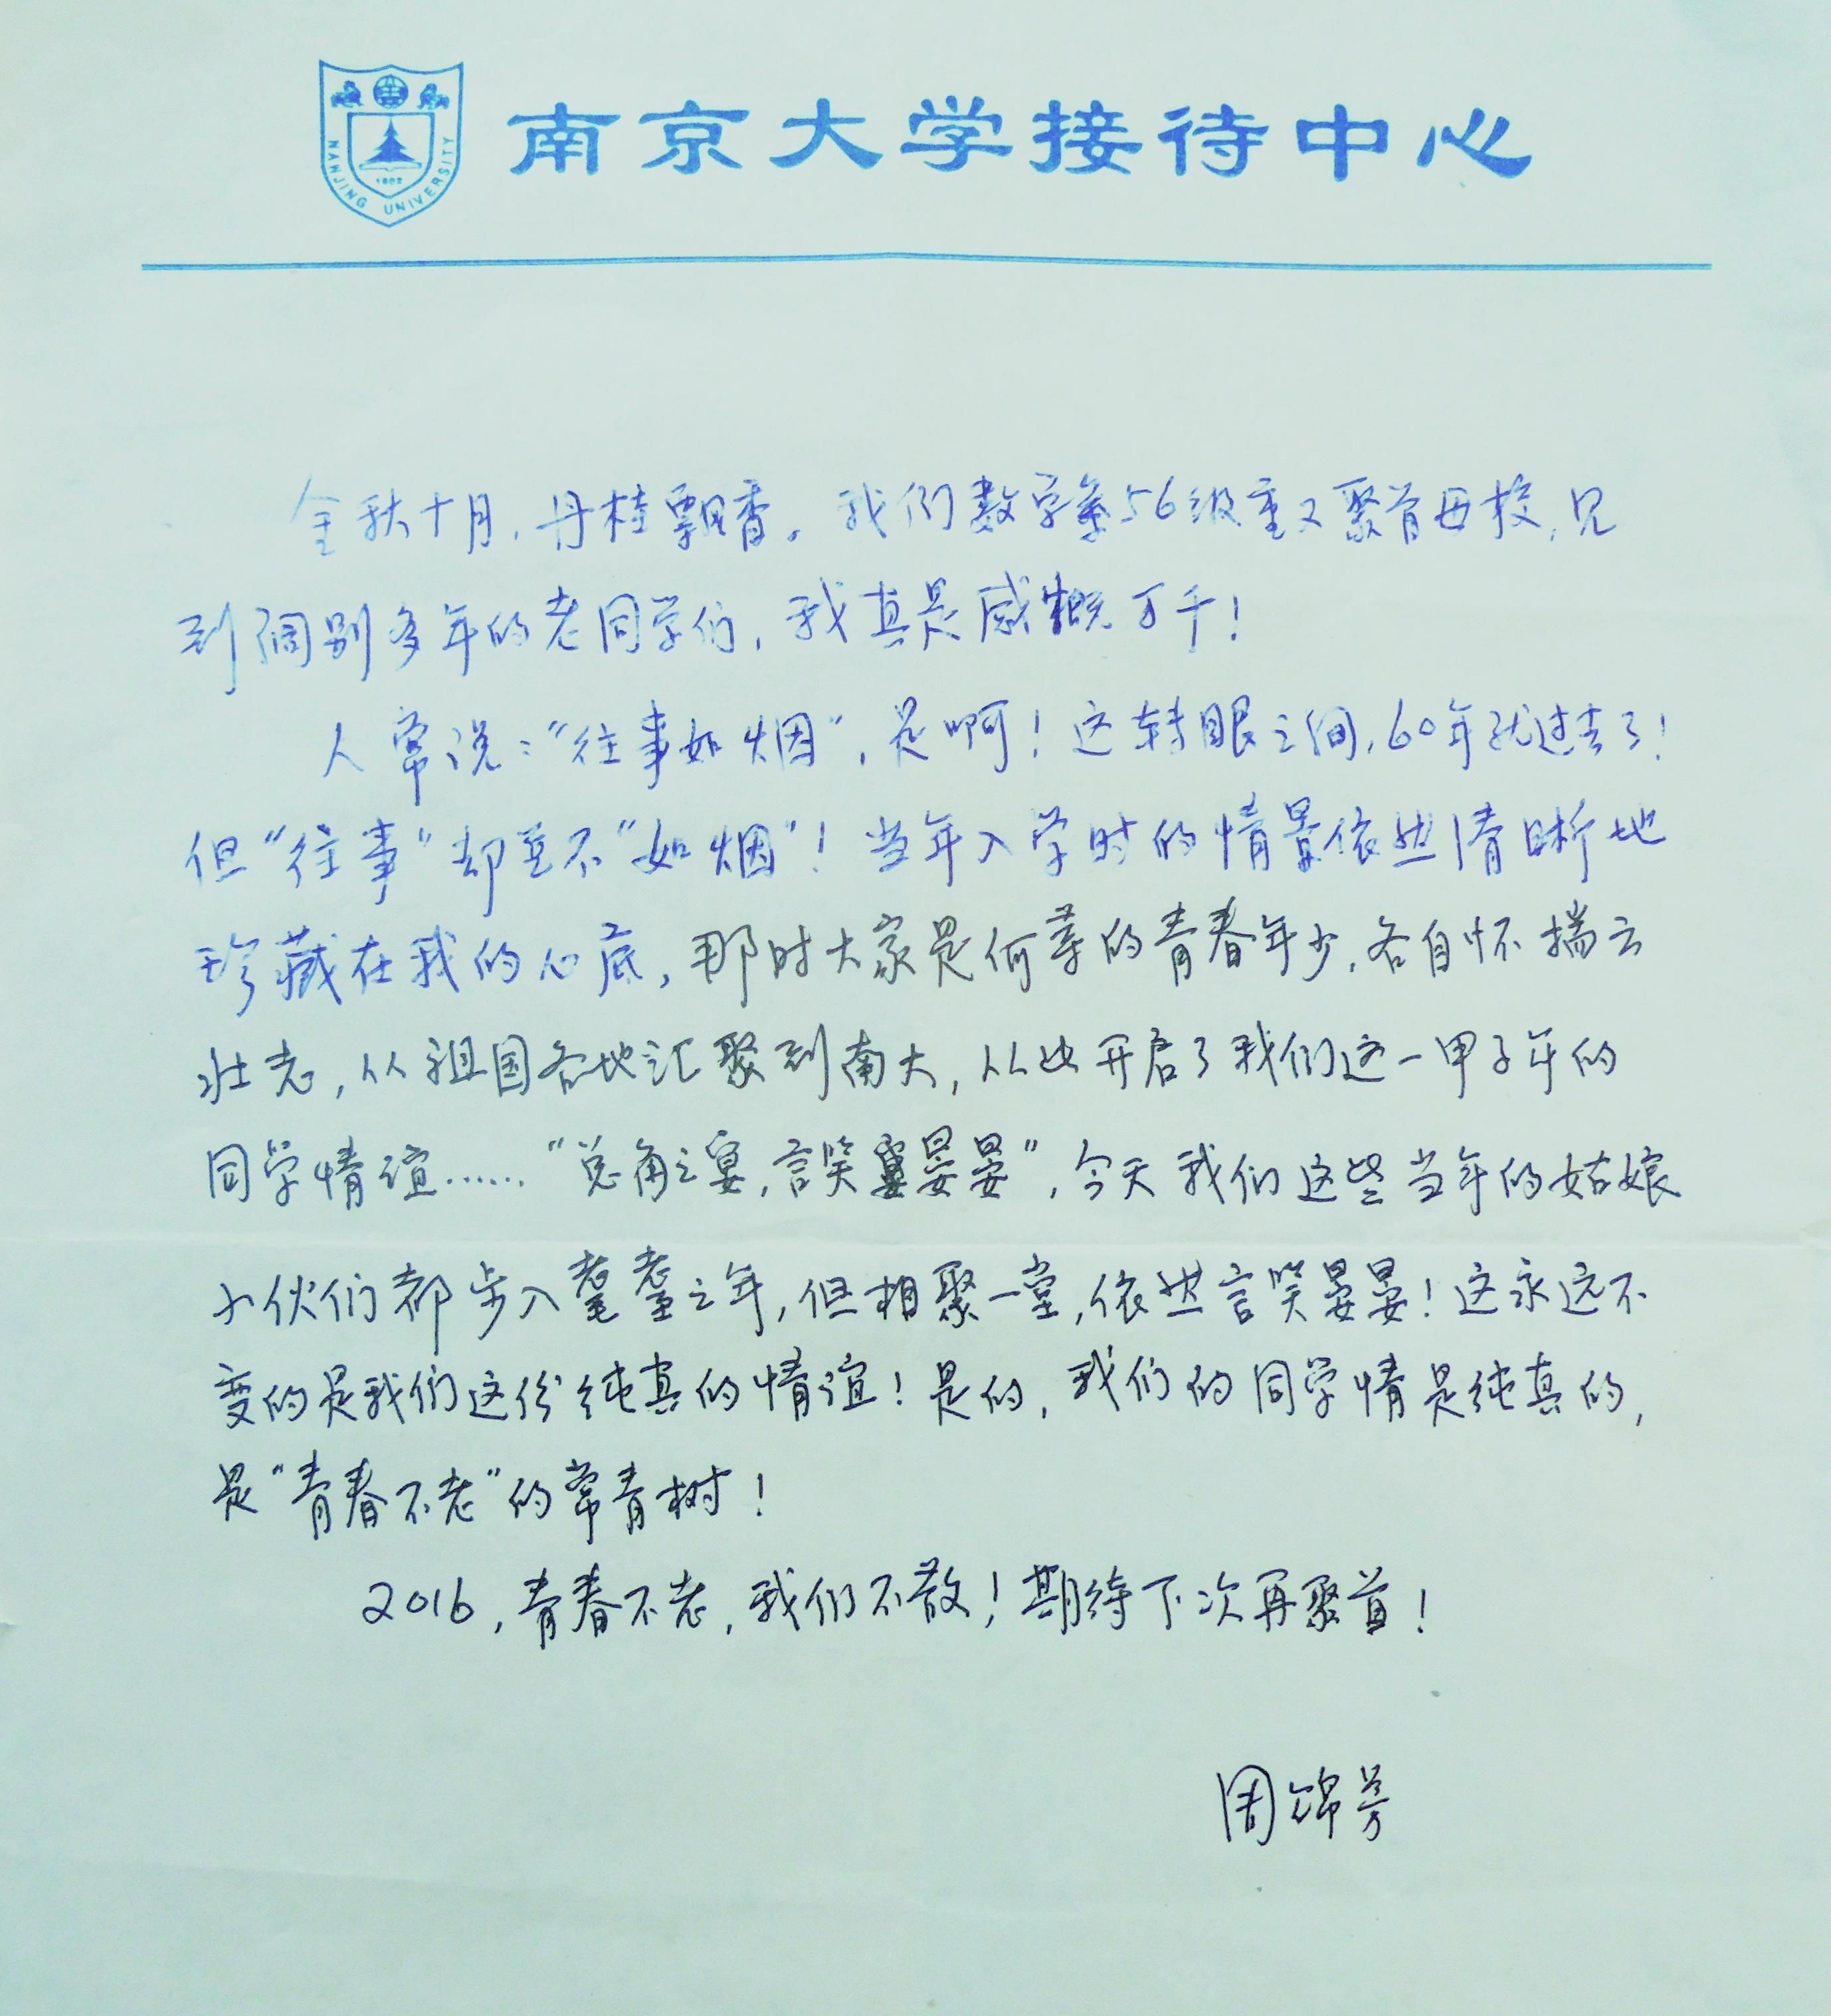 NANJING UNIVERSITY
1902
南京大学接待中心
金秋十月，丹桂飘香。我们数学系56级重又聚首母校，见
到阔别多年的老同学们，我真是感慨万千！
人常说：“往事如烟”，是啊！这转眼之间，60年就过去了！
但“往事”却并不“如烟”！当年入学时的情景依然清晰地
珍藏在我的心底，那时大家是何等的青春年少，各自怀揣云
壮志，从祖国各地汇聚到南大，从此开启了我们这一甲子年的
同学情谊……“总角之宴，言笑晏晏”，今天我们这些当年的姑娘
小伙们都步入耄耋之年，但相聚一堂，依然言笑晏晏！这永远不
变的是我们这份纯真的情谊！是的，我们的同学情是纯真的，
是“青春不老”的常青树！
2016，青春不老，我们不散！期待下次再聚首！
周锦芳